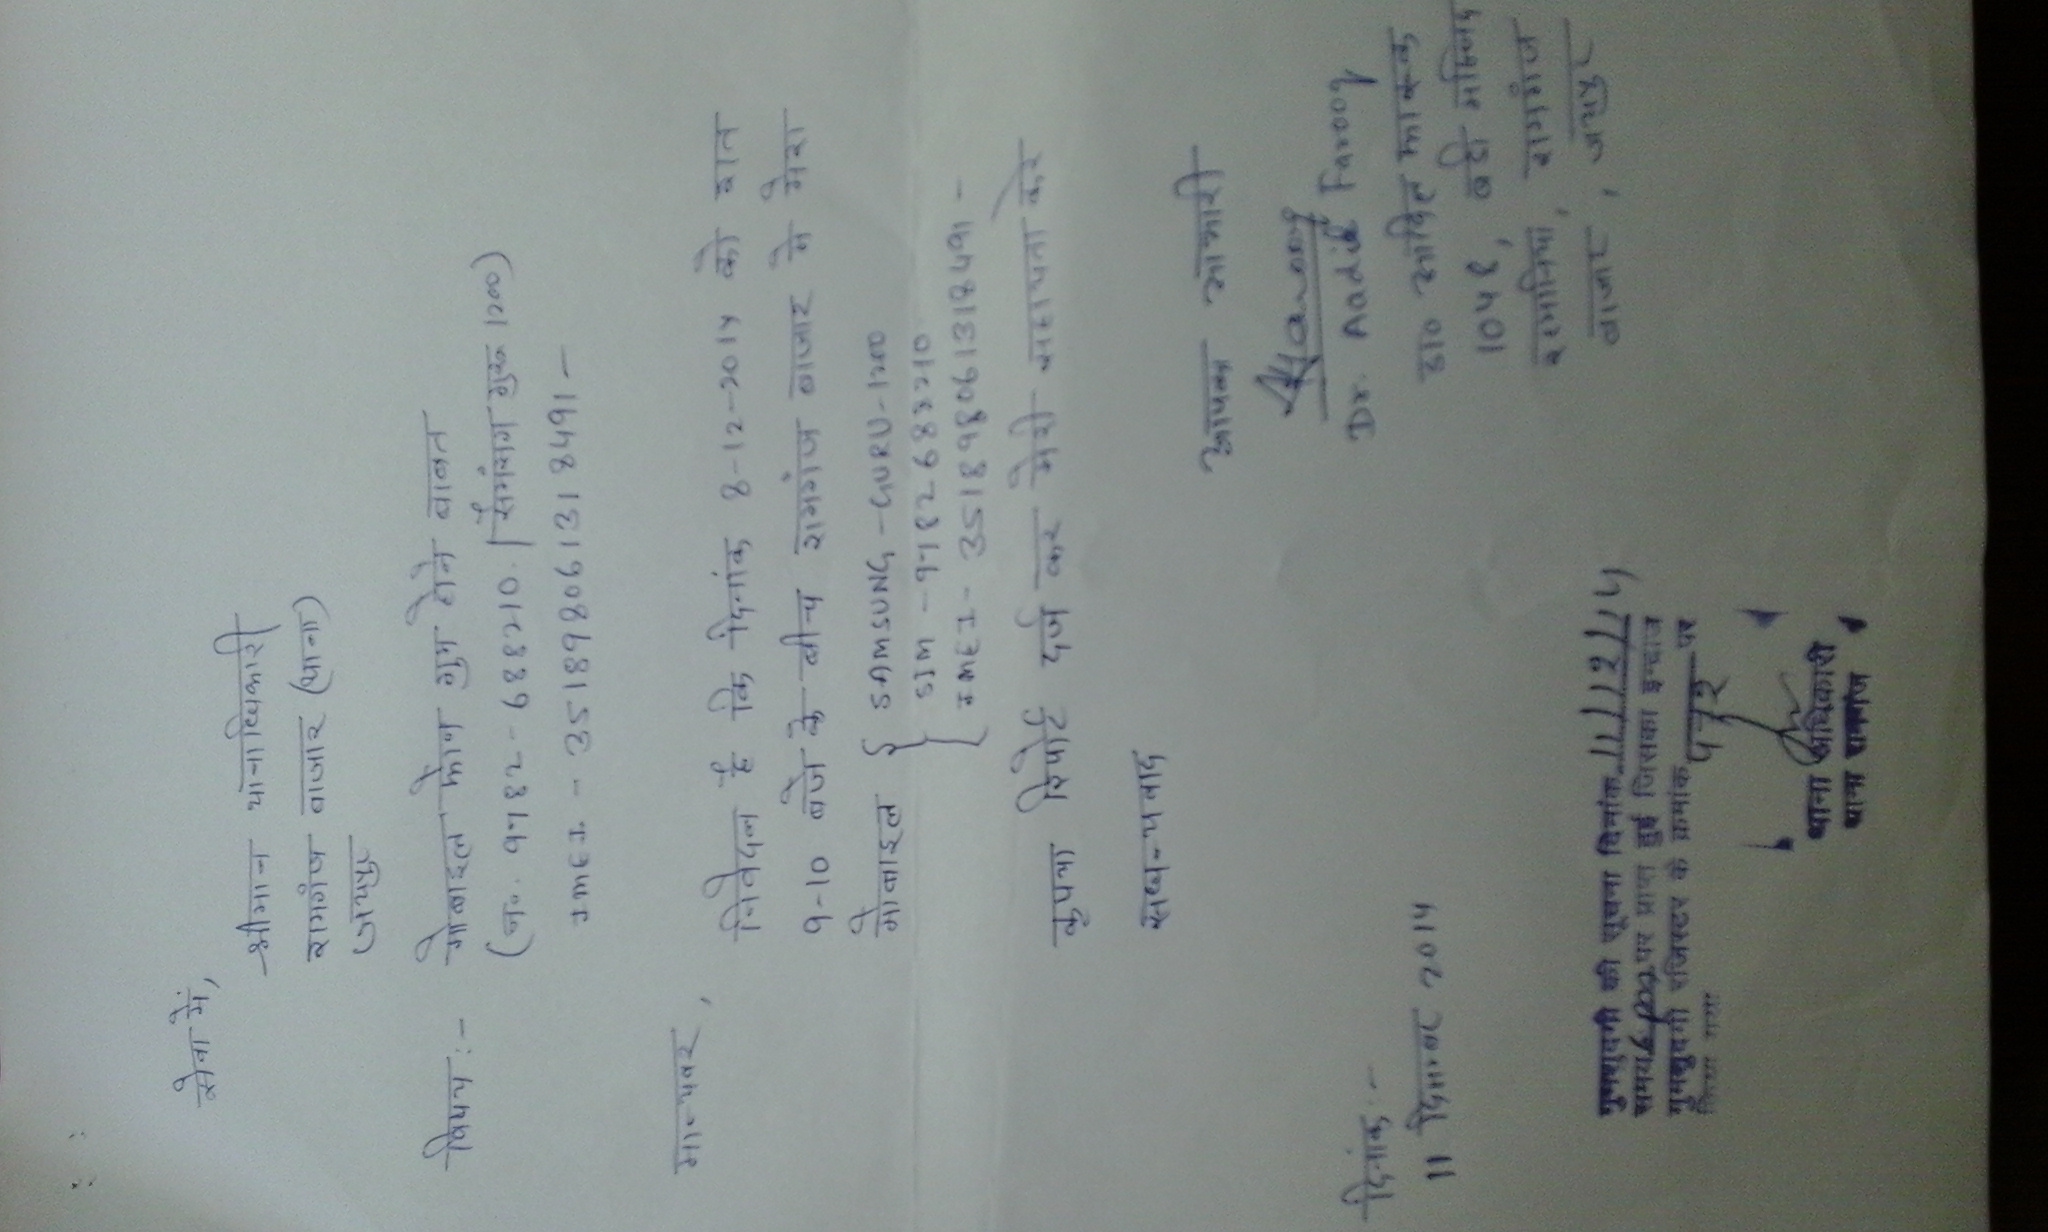 सेवा में,
श्रीमान थानाधिकारी
रामगंज बाजार (थाना)
जयपुर
विषय :- मोबाइल फोन गुम होने बाबत
(नं. 9782-688210 / सैमसंग गुरू 1200)
IMEI - 351898061318491 -
मान्यवर,
निवेदन है कि दिनांक 8-12-2014 को रात
9-10 बजे के बीच रामगंज बाजार मे मेरा
मोबाइल { SAMSUNG - GURU - 1200
SIM - 9782688210
IMEI - 351898061318491 -
कृपया रिपोर्ट दर्ज कर मेरी सहायता करे
सधन्यवाद
आपका आभारी
Dr. Aadil Farooq
डा० आदिल फारूक
1048, बडी मस्जिद
रामगंज
बाजार, जयपुर
दिनांक :-
11 दिसम्बर 2014
गुमशुदगी की सूचना दिनांक 11/12/14
समय पर प्राप्त हुई जिसका इन्द्राज
गुमशुदगी रजिस्टर के क्रमांक पर
किया गया
थाना अधिकारी
थाना रामगंज